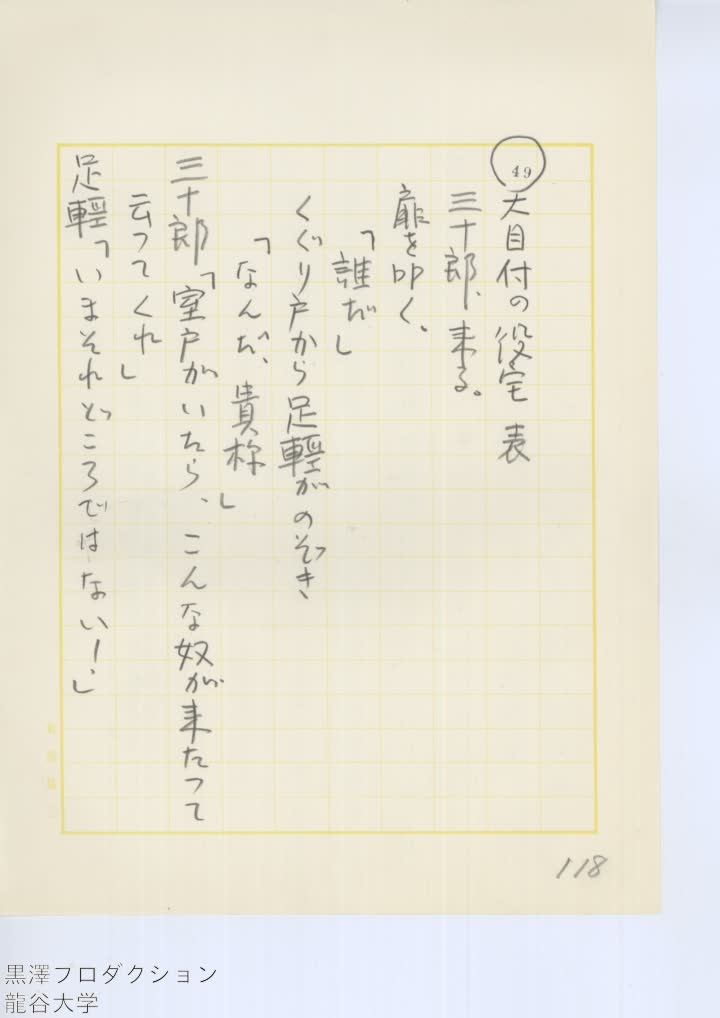 49
大目付の役宅 表
三十郎、来る。
扉を叩く。
「誰だ」
くぐり戸から足軽がのぞき
「なんだ、貴様」
三十郎「室戸がいたら、こんな奴が来たって
云ってくれ」
足軽「いまそれどころではない！」
118
黒澤プロダクション
龍谷大学